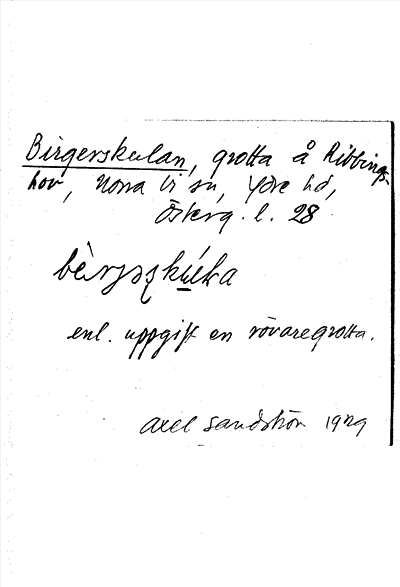 Birgerskulan, grotta å Ribbings-
hov, Norra Vi sn, Ydre hd,
Österg. l. 28
enl. uppgift en rövaregrotta.
Axel Sandström 1929